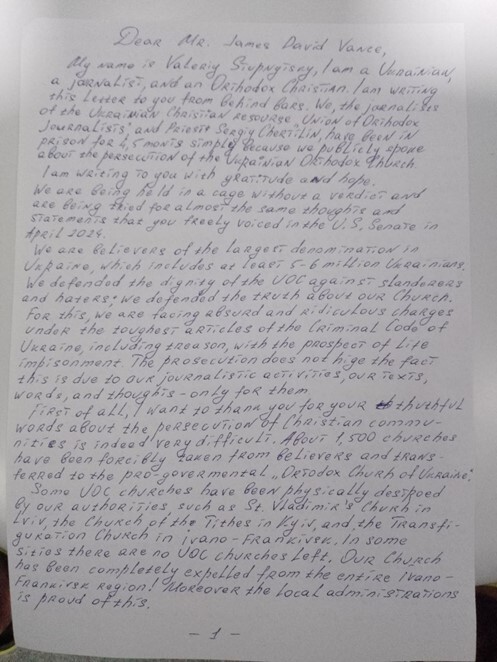 Dear Mr. James David Vance,
My name is Valeriy Stupnytsky, I am a Ukrainian,
a jornalist, and an Orthodox Christian. I am writing
this letter to you from behind bars. We, the jornalists
of the Ukrainian Christian resourse „Union of Orthodox
Journalists", and Priest Sergiy Chertilin, have been in
prison for 4,5 monts simply because we publicly spoke
about the persecution of the Ukrainian Orthodox Church.
I am writing to you with gratitude and hope.
We are being held in a cage without a verdict and
are being tried for almost the same thoughts and
statements that you freely voiced in the U.S. Senate in
April 2024.
We are believers of the largest denomination in
Ukraine, which includes at least 5-6 million Ukrainians.
We defended the dignity of the UOC against slanderers
and haters; we defended the truth about our Church.
For this, we are facing absurd and ridiculous charges
under the toughest articles of the Criminal Code of
Ukraine, including treason, with the prospect of life
impisonment. The prosecution does not hige the fact
this is due to our journalistic activities, our texts,
words, and thoughts - only for them.
First of all, I want to thank you for your thuthful
words about the persecution of Christian commu-
nities is indeed very difficult. About 1,500 churches
have been forcibly taken from believers and trans-
ferred to the pro-govermental „Ortodox Church of Ukraine".
Some UOC churches have been physically destroed
by our authorities, such as St. Vladimir's Church in
Lviv, the Church of the Tithes in Kyiv, and the Transfi-
guration Church in Ivano-Frankivsk. In some
sities there are no UOC churches left. Our Church
has been completely expelled from the entire Ivano-
Frankivsk region! Moreover the local administrations
is proud of this.
- 1 -